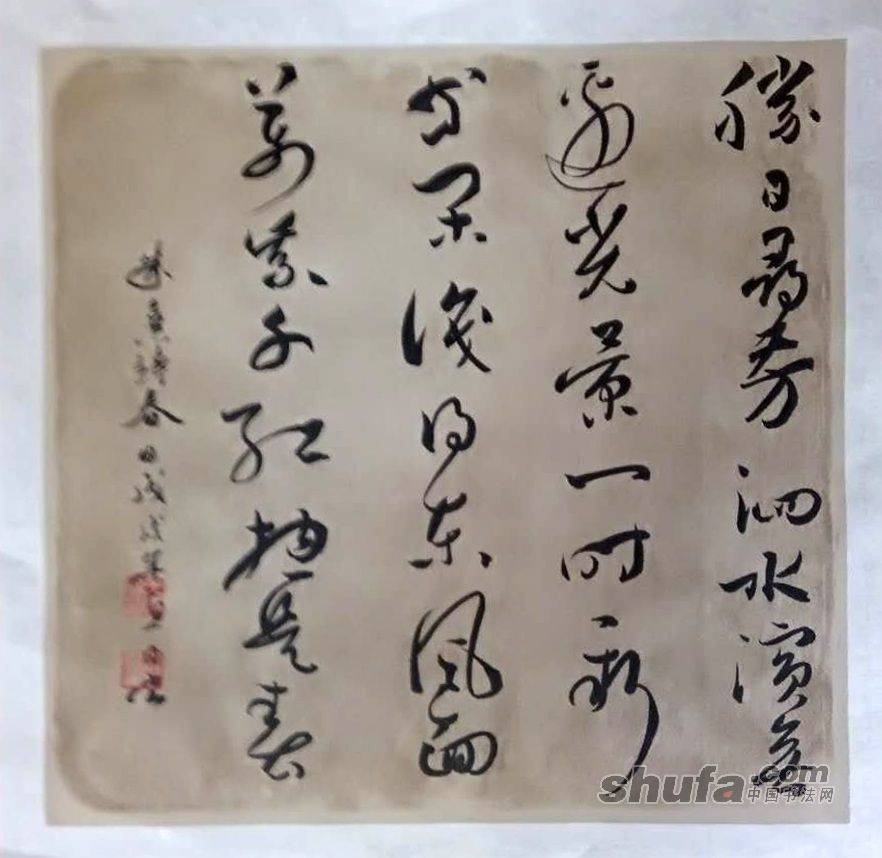 勝日尋芳泗水濱無
邊光景一時新
等閒識得東風面
萬紫千紅總是春
朱熹詩春日戊戌
shufa.com
中国书法网